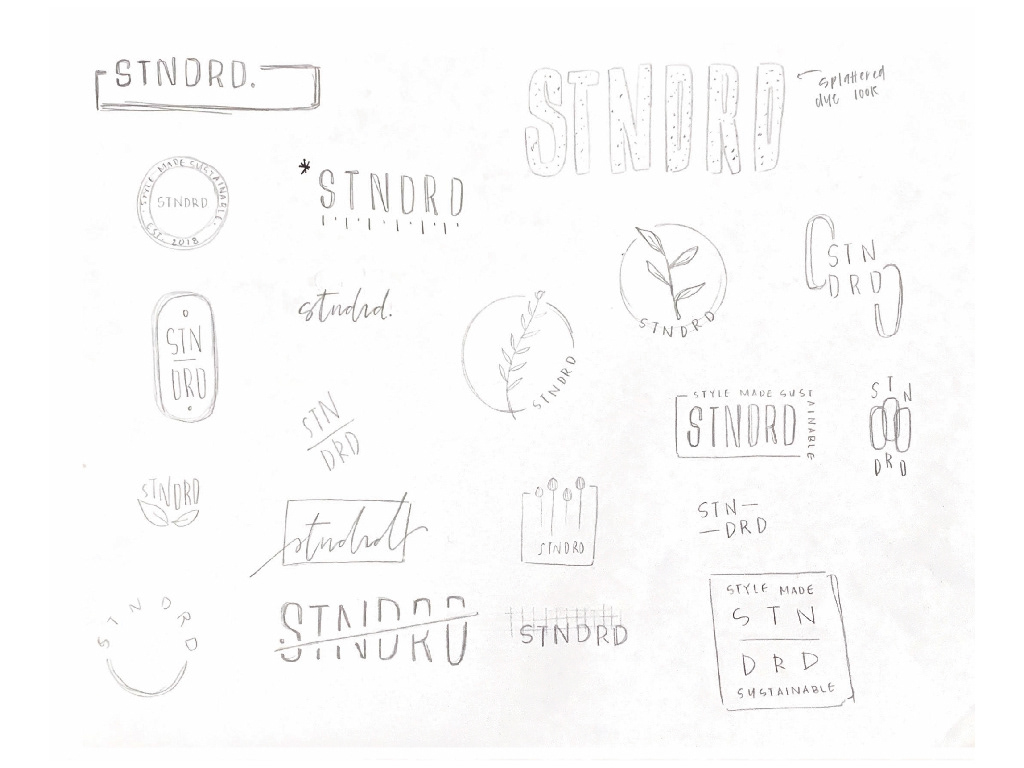 STNDRD.
STNDRD
splattered
dye look
STYLE MADE SUSTAINABLE.
STNDRD
EST. 2018
*STNDRD
STNDRD
STN
DRD
STN
DRD
stndrd.
STNDRD
STYLE MADE SUSTAINABLE
STNDRD
STN
DRD
STN
DRD
STNDRD
stndrd
STNDRD
STN—
—DRD
STNDRD
STNDRD
STNDRD
STYLE MADE
STN
DRD
SUSTAINABLE